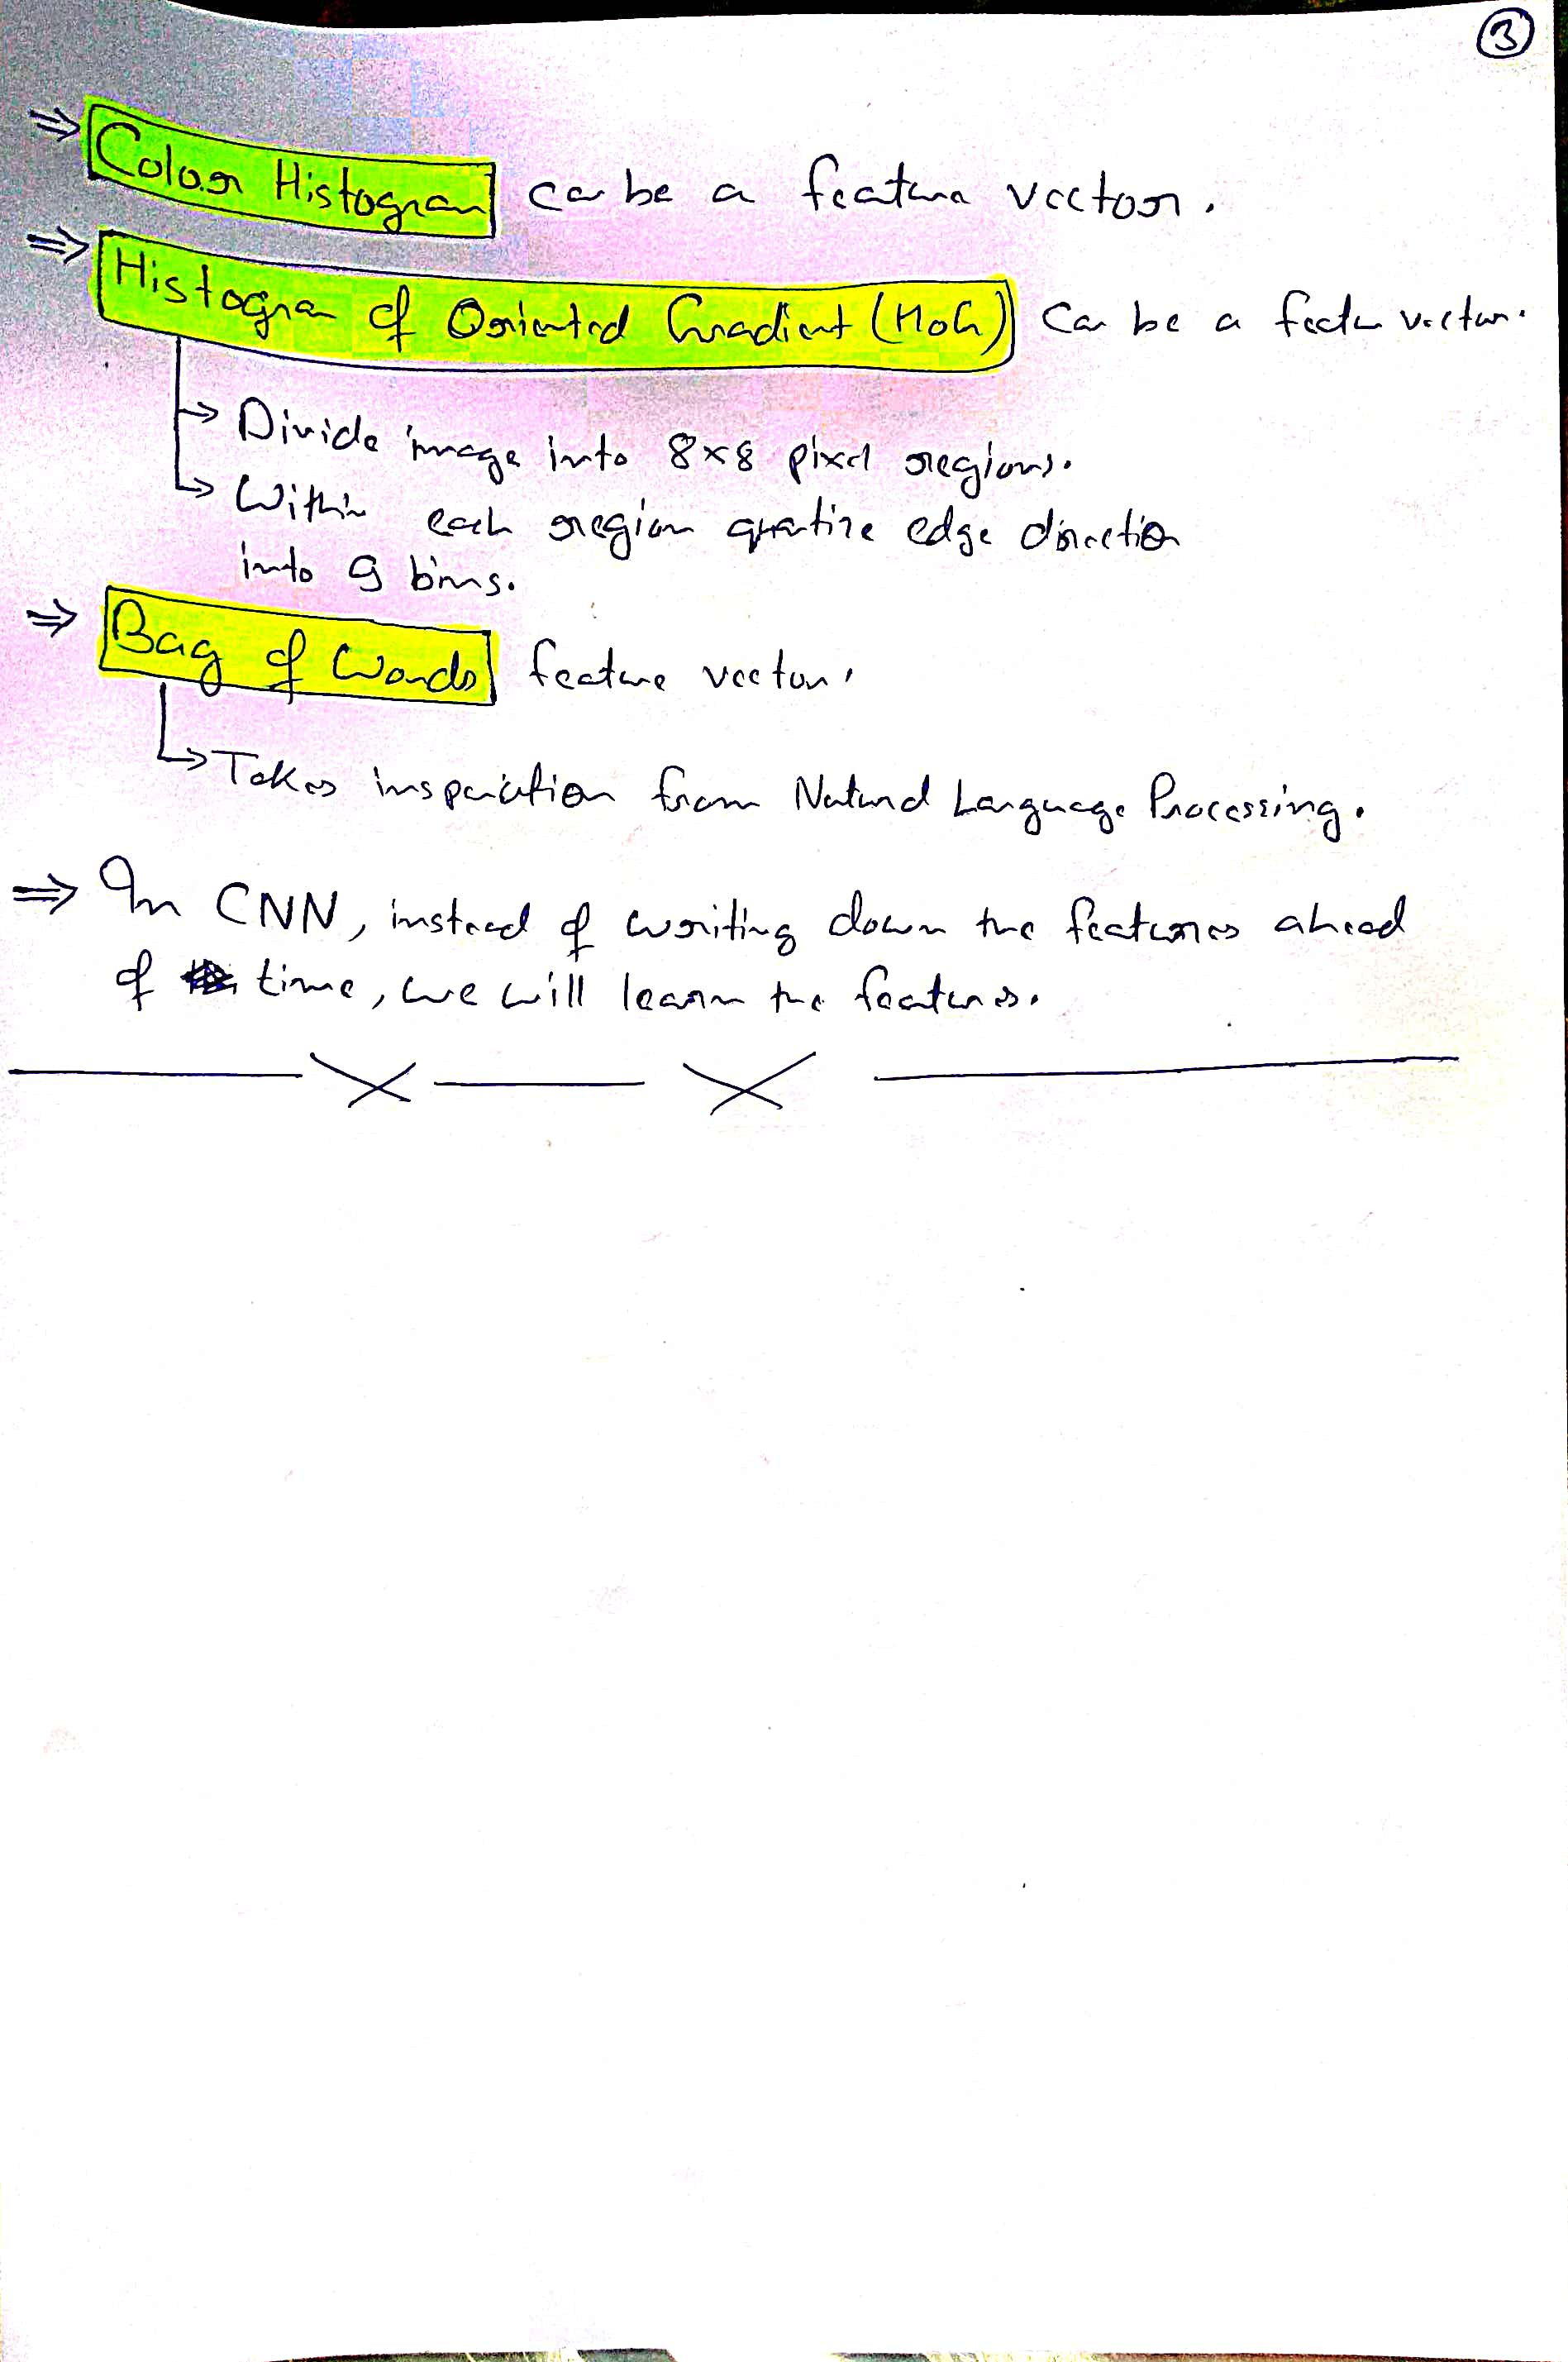 3
⇒ Colour Histogram can be a feature vector.
⇒ Histogram of Oriented Gradient (HoG) can be a feature vector.
→ Divide image into 8×8 pixel regions.
→ Within each region quantize edge direction
into 9 bins.
⇒ Bag of Words feature vector.
→ Takes inspiration from Natural Language Processing.
⇒ In CNN, instead of writing down the features ahead
of time, we will learn the features.